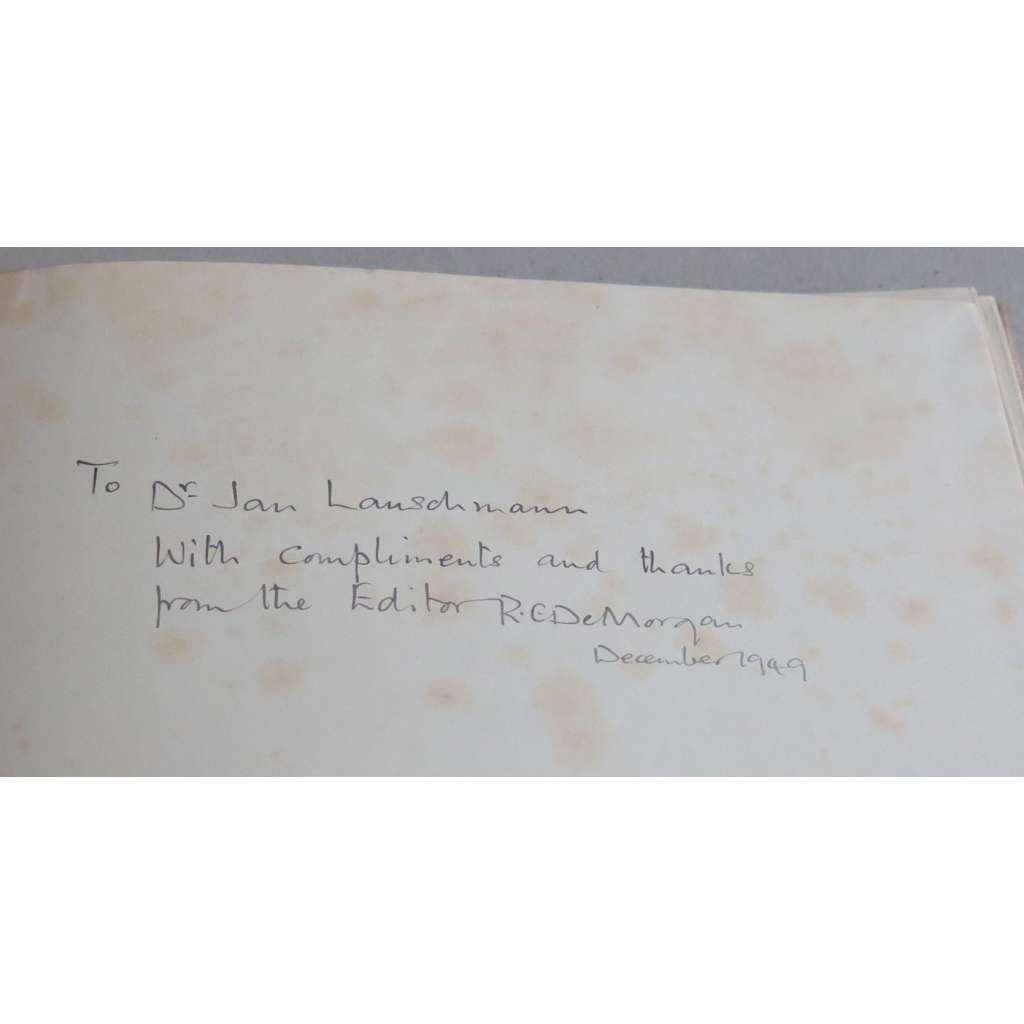 To
Dr Jan Lauschmann
With compliments and thanks
from the Editor R.C.DeMorgan
December 1949